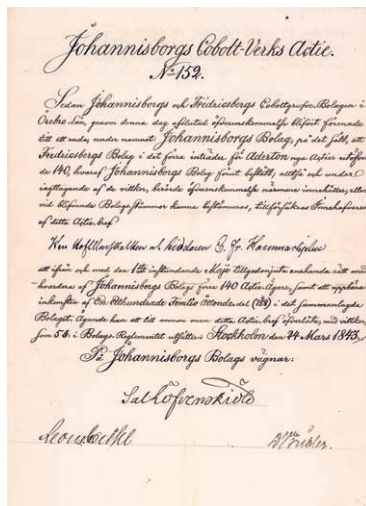 Johannisborgs Cobolt-Verks Actie.
No 152.
Sedan Johannisborgs och Fredricsbergs Cobottgrufve Bolagen i
Örebro Län, genom denna dag afslutad öfverenskommelse blifvit förenade
till ett enda, under namnet Johannisborgs Bolag, på det sätt, att
Fredricsbergs Bolag i det förra inträder för Aderton nya Actier utöfver
de 140, hvaraf Johannisborgs Bolag förut bestått, alltså och under
iagttagande af de vilkor, berörde öfverenskommelse närmare innehåller, eller
vid blifvande Bolags-stämmor kunna bestämmas, tillförsäkras Innehafvaren
af detta Actie-bref
Herr Hofmarskalken och Riddaren
att ifrån och med den 1sta instundande Maji tillgodonjuta enahanda rätt med
hvardera af Johannisborgs Bolags förre 140 Actie-Ägare, samt att uppbära
inkomsten af Ett Etthundrade Femtio Åttondedel (1/158) i det sammanlagda
Bolaget. Ägande han att till annan man detta Actie-bref öfverlåta, med vilkor,
som § 5 i Bolags-Reglementet utsätter. Stockholm den 24 Mars 1843.
På Johannisborgs Bolags vägnar: